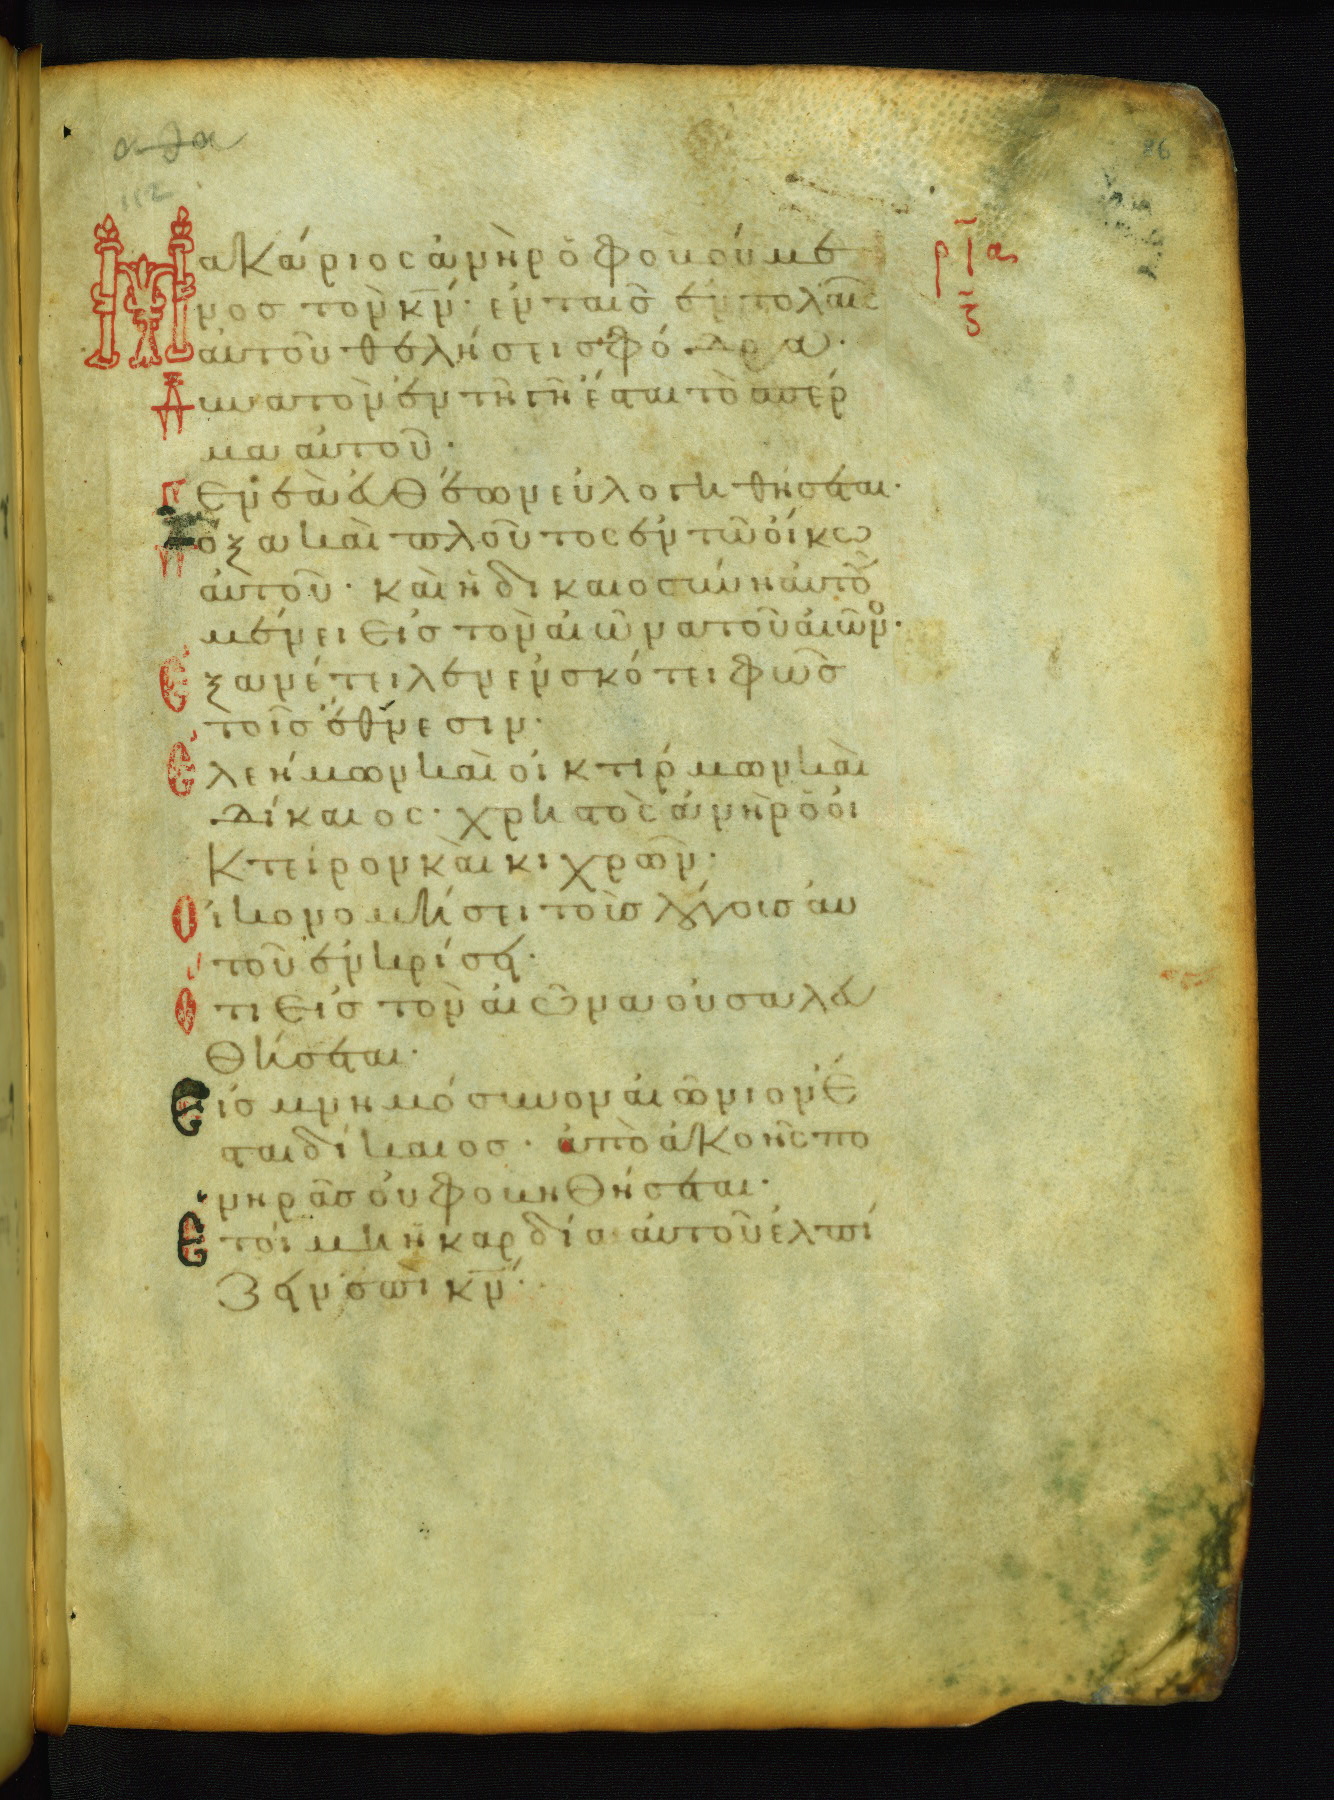 αλα
112
96
ρια
ζ
Μακάριος ἀνὴρ ὁ φοβούμε
νος τὸν κν· ἐν ταῖς ἐντολαῖς
αὐτοῦ θελήσει σφόδρα·
Δυνατὸν ἐν τῆ γῆ ἔσται τὸ σπέρ
μα αὐτοῦ·
Γενεὰ εὐθέων εὐλογηθήσεται·
Δόξα καὶ πλοῦτος ἐν τῶ οἴκω
αὐτοῦ· καὶ ἡ δικαιοσύνη αὐτοῦ
μένει εἰς τὸν αἰῶνα τοῦ αἰῶνο·
Ἐξανέτειλεν ἐν σκότει φῶς
τοῖς ἔθνεσιν·
Ἐλεήμων καὶ οἰκτίρμων καὶ
δίκαιος· χρηστὸς ἀνὴρ ὁ οἰ
κτείρον καὶ κιχρῶν·
Οἰκονομήσει τοὺς λόγοις αὐ
τοῦ ἐν κρίσει·
Ὅτι εἰς τὸν αἰῶνα οὐ σαλευ
θήσεται·
Εἰς μνημόσυνον αἰώνιον ἔ
σται δίκαιος· ἀπὸ ἀκοῆς πο
νηρᾶς οὐ φοβηθήσεται·
Ἑτοίμη ἡ καρδία αὐτοῦ ἐλπί
ζειν ἐπὶ κν·